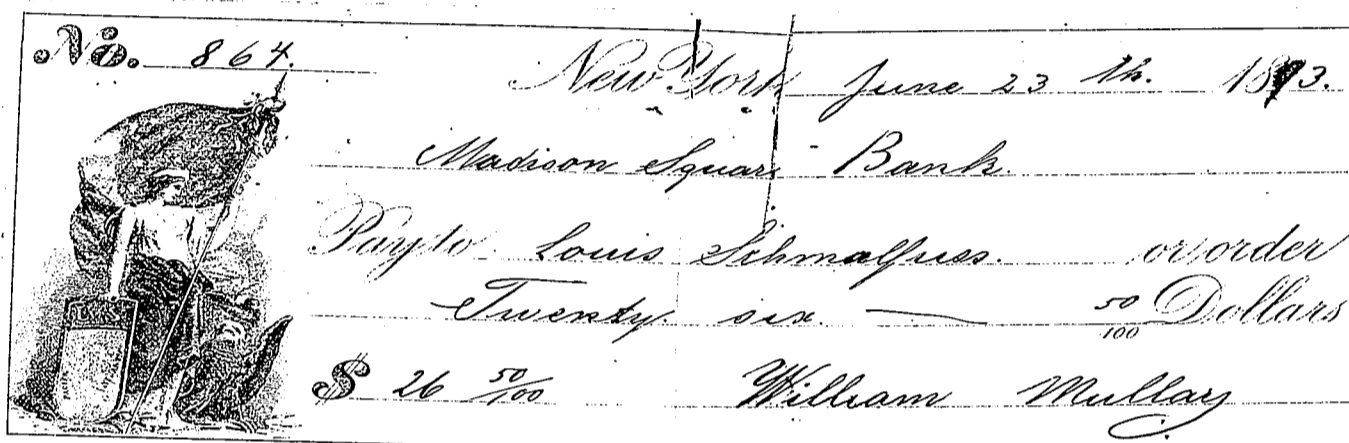 No. 864.
New York June 23 th. 1893.
Madison Square Bank.
Pay to Louis Schmalfuss. or order
Twenty six. — 50/100 Dollars
$ 26 50/100 William Mullay